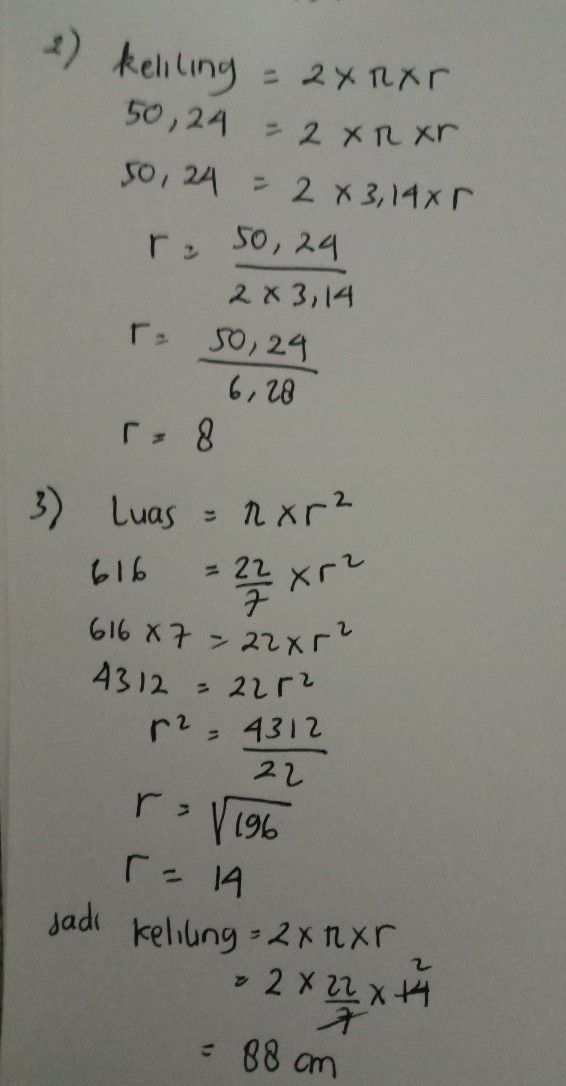 2) Keliling = 2 × π × r
50,24 = 2 × π × r
50,24 = 2 × 3,14 × r
r = 50,24
2 × 3,14
r = 50,24
6,28
r = 8
3) Luas = π × r²
616 = 22/7 × r²
616 × 7 = 22 × r²
4312 = 22r²
r² = 4312
22
r = √196
r = 14
Jadi Keliling = 2 × π × r
= 2 × 22/7 × 14 2
= 88 cm